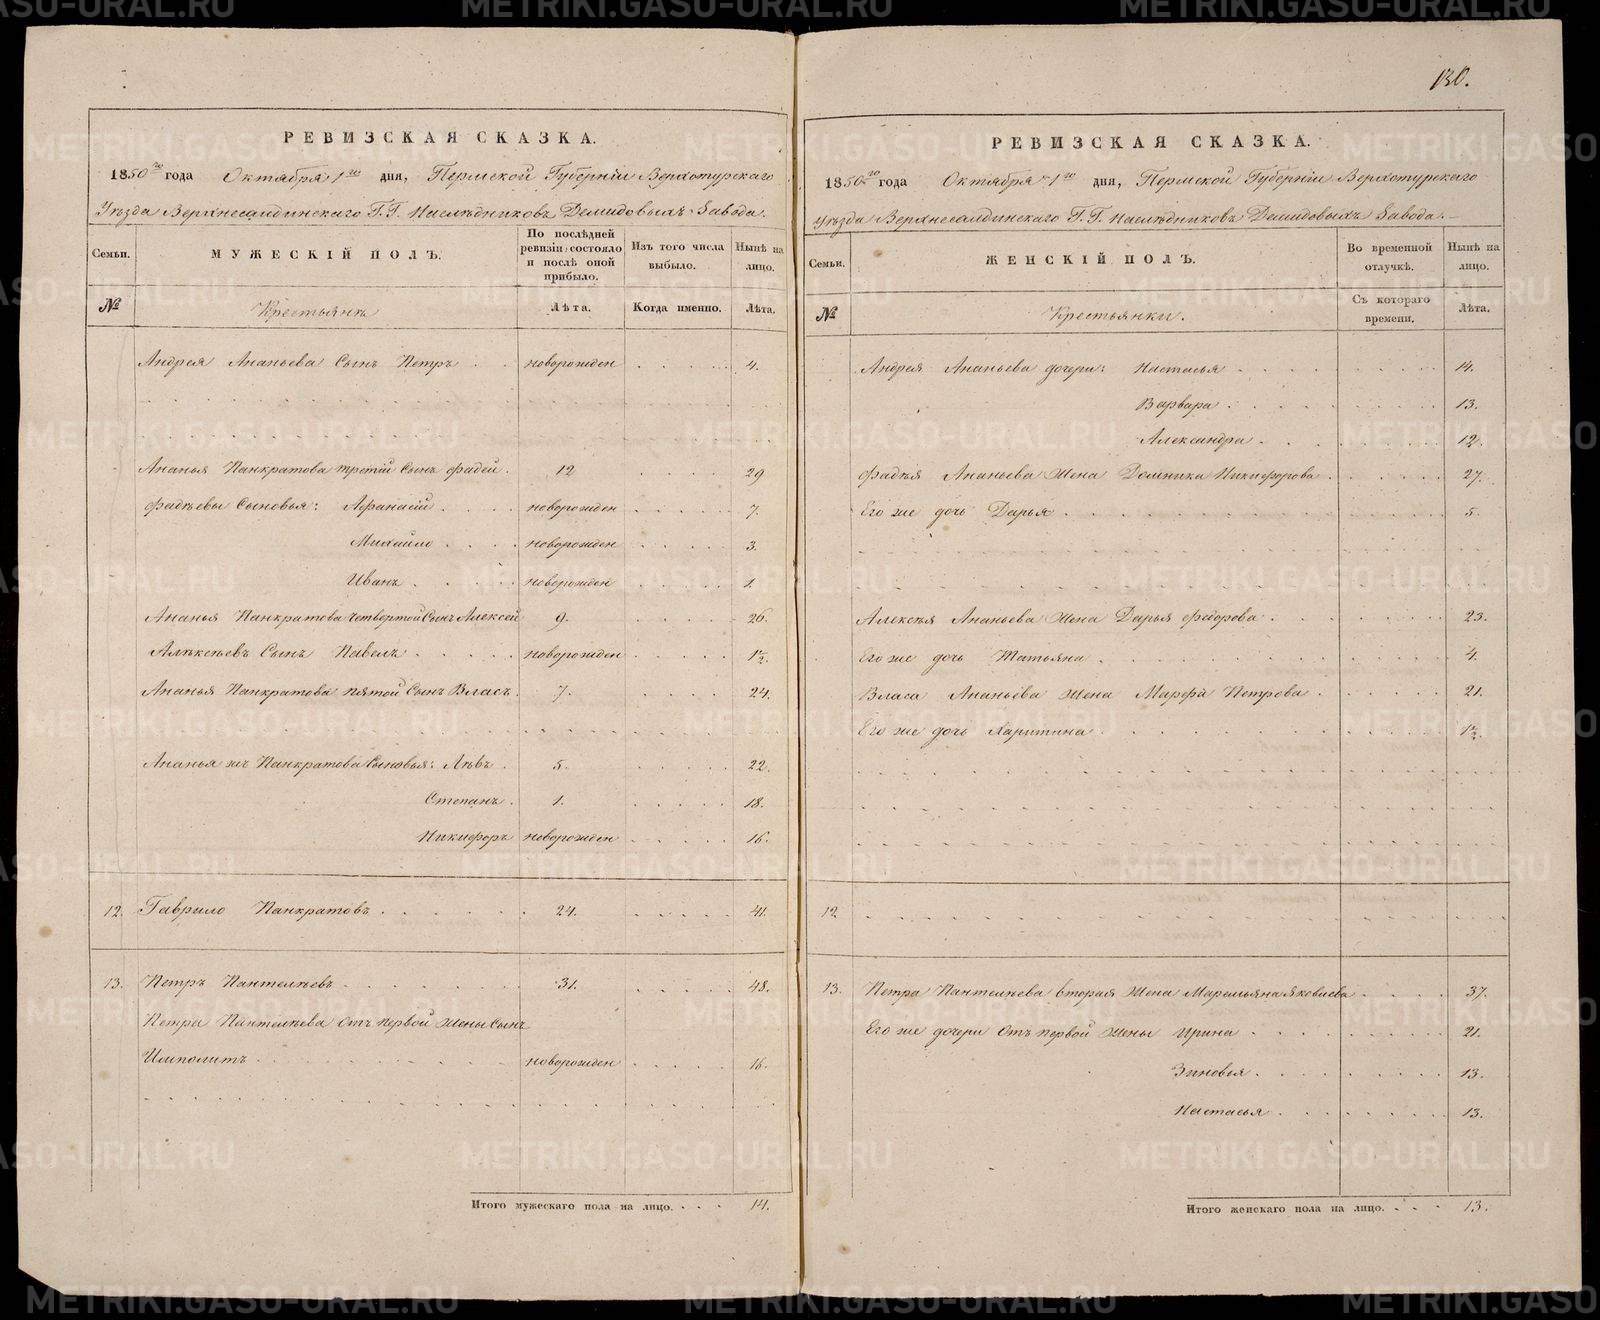 130.
РЕВИЗСКАЯ СКАЗКА.
1850го года Октября 1го дня, Пермской Губернiи Верхотурскаго
Уѣзда Верхнесалдинскаго Г.Г. Наслѣдниковъ Демидовыхъ Завода.
Семьи. МУЖЕСКIЙ ПОЛЪ. По послѣдней ревизiи состояло и послѣ оной прибыло. Изъ того числа выбыло. Нынѣ на лицо.
№ Крестьянъ Лѣта. Когда именно. Лѣта.
Андрея Ананьева Сынъ Петръ новорожден 4.
Ананья Панкратова третiй Сынъ Фадей 12 29
Фадѣевы Сыновья: Афанасiй новорожден 7.
Михайло новорожден 3.
Иванъ новорожден 1.
Ананья Панкратова четвертой Сынъ Алексей 9. 26.
Алѣксѣевъ Сынъ Павелъ новорожден 1½.
Ананья Панкратова пятой Сынъ Власъ 7. 24.
Ананья же Панкратова Сыновья: Левъ 5. 22.
Степанъ 1. 18.
Никифоръ новорожден 16.
12. Гаврило Панкратовъ 24. 41.
13. Петръ Пантелѣевъ 31. 48.
Петра Пантелѣева отъ первой жены Сынъ
Иполитъ новорожден 16.
Итого мужескаго пола на лицо. 14.
РЕВИЗСКАЯ СКАЗКА.
1850го года Октября 1го дня, Пермской Губернiи Верхотурскаго
Уѣзда Верхнесалдинскаго Г.Г. Наслѣдниковъ Демидовыхъ Завода.
Семьи. ЖЕНСКIЙ ПОЛЪ. Во временной отлучкѣ. Нынѣ на лицо.
№ Крестьянки. Съ котораго времени. Лѣта.
Андрея Ананьева дочери: Настасья 14.
Варвара 13.
Александра 12.
Фадѣя Ананьева жена Домника Никифорова 27.
Его же дочь Дарья 5.
Алексѣя Ананьева жена Дарья Федорова 23.
Его же дочь Татьяна 4.
Власа Ананьева жена Марфа Петрова 21.
Его же дочь Харитина 1½.
12
13. Петра Пантелѣева вторая жена Маремьяна Яковлева 37.
Его же дочери отъ первой жены Ирина 21.
Зиновья 13.
Настасья 13.
Итого женскаго пола на лицо. 13.
METRIKI.GASO-URAL.RU